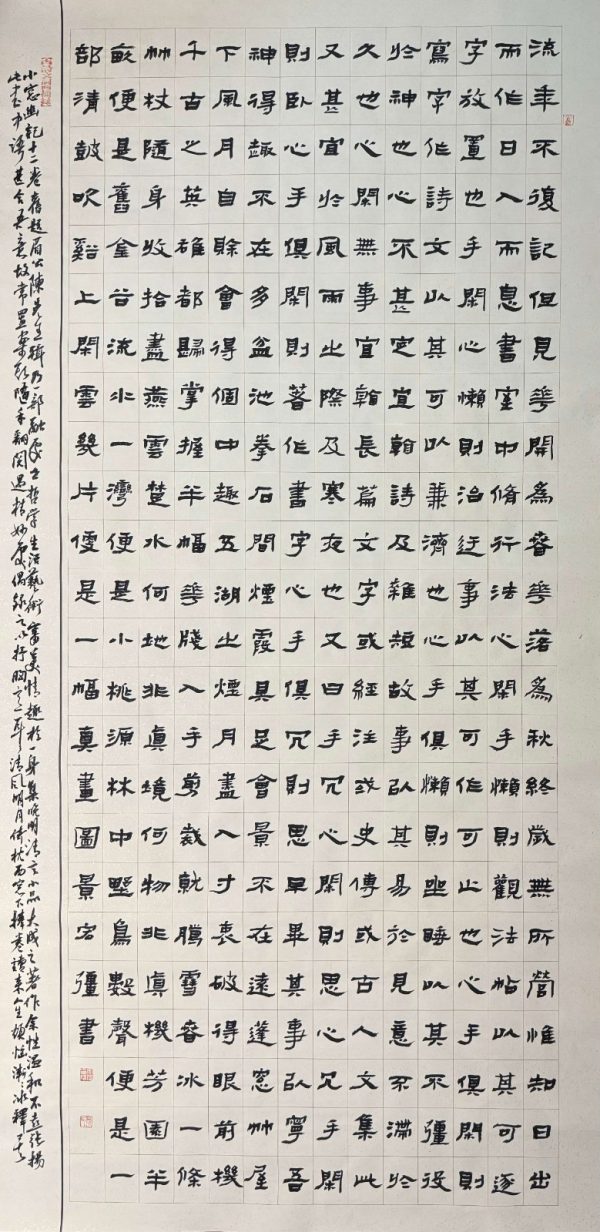 流年不復記但見華開為春華落為秋終歲無所營惟知日出
而作日入而息書室中脩行法心閑手懶則觀法帖以其可逐
字放置也手閑心懶則治迂事以其可作可止也心手俱閑則
寫字作詩文以其可以兼濟也心手俱懶則坐睡以其不彊役
於神也心不甚定宜翰詩及雜短故事以其易於見意不滯於
久也心閑無事宜翰長篇文字或經注或史傳或古人文集此
又甚宜於風雨之際及寒夜也又曰手冗心閑則思心冗手閑
則臥心手俱閑則著作書字心手俱冗則思早畢其事以寧吾
神得趣不在多盆池拳石間煙霞具足會景不在遠蓬窗艸屋
下風月自賒會得個中趣五湖之煙月盡入寸衷破得眼前機
千古之英雄都歸掌握半幅華牋入手剪裁就臘雪春冰一條
竹杖隨身收拾盡燕雲楚水何地非真境何物非真機芳園半
畝便是舊金谷流水一灣便是小桃源林中野鳥數聲便是一
部清鼓吹谿上閑雲幾片便是一幅真畫圖景宏彊書
小窗幽記十二卷舊題眉公陳先生輯乃一部融處世哲學生活藝術審美情趣於一身集晚明清言小品大成之著作余性溫和不喜張揚
此書亦諱甚合吾意故常置案頭隨手翻閱遇精妙處偶錄之以抒胸意耳清風明月倚枕西窗下捧卷讀來人生煩惱漸冰釋